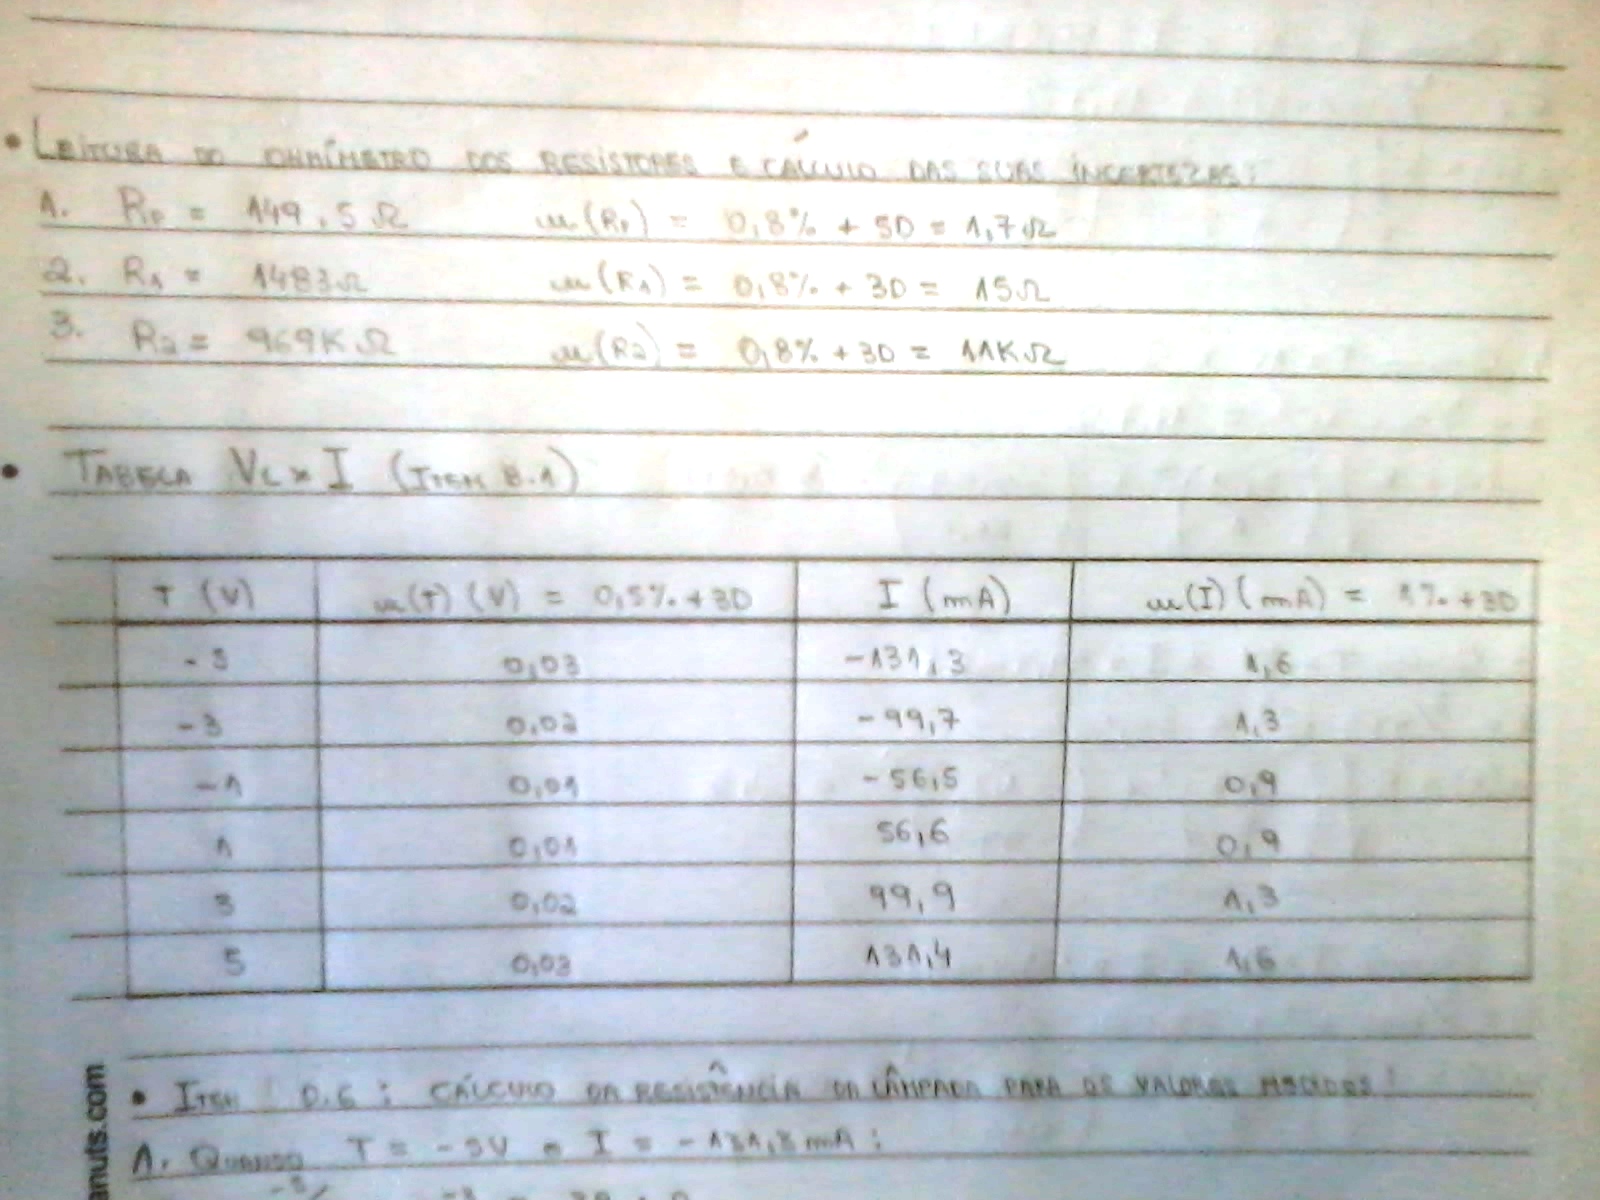 • LEITURA DO OHMÍMETRO DOS RESISTORES E CÁLCULO DAS SUAS INCERTEZAS:
1. Rp = 149,5 Ω u(Rp) = 0,8% + 5D = 1,7Ω
2. R1 = 1483Ω u(R1) = 0,8% + 3D = 15Ω
3. R2 = 969KΩ u(R2) = 0,8% + 3D = 11KΩ
• TABELA VL x I (ITEM B.1)
T (V) u(T) (V) = 0,5% + 3D I (mA) u(I) (mA) = 1% + 3D
-5 0,03 -131,3 1,6
-3 0,02 -99,7 1,3
-1 0,01 -56,5 0,9
1 0,01 56,6 0,9
3 0,02 99,9 1,3
5 0,03 131,4 1,6
• ITEM D.6: CÁLCULO DA RESISTÊNCIA DA LÂMPADA PARA OS VALORES MEDIDOS:
1. QUANDO T = -5V e I = -131,3mA:
anuts.com